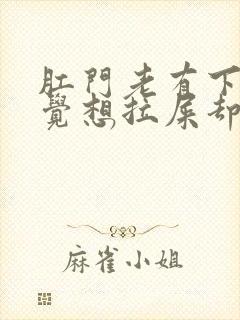 肛門老有下
覺想拉屎却
麻雀小姐